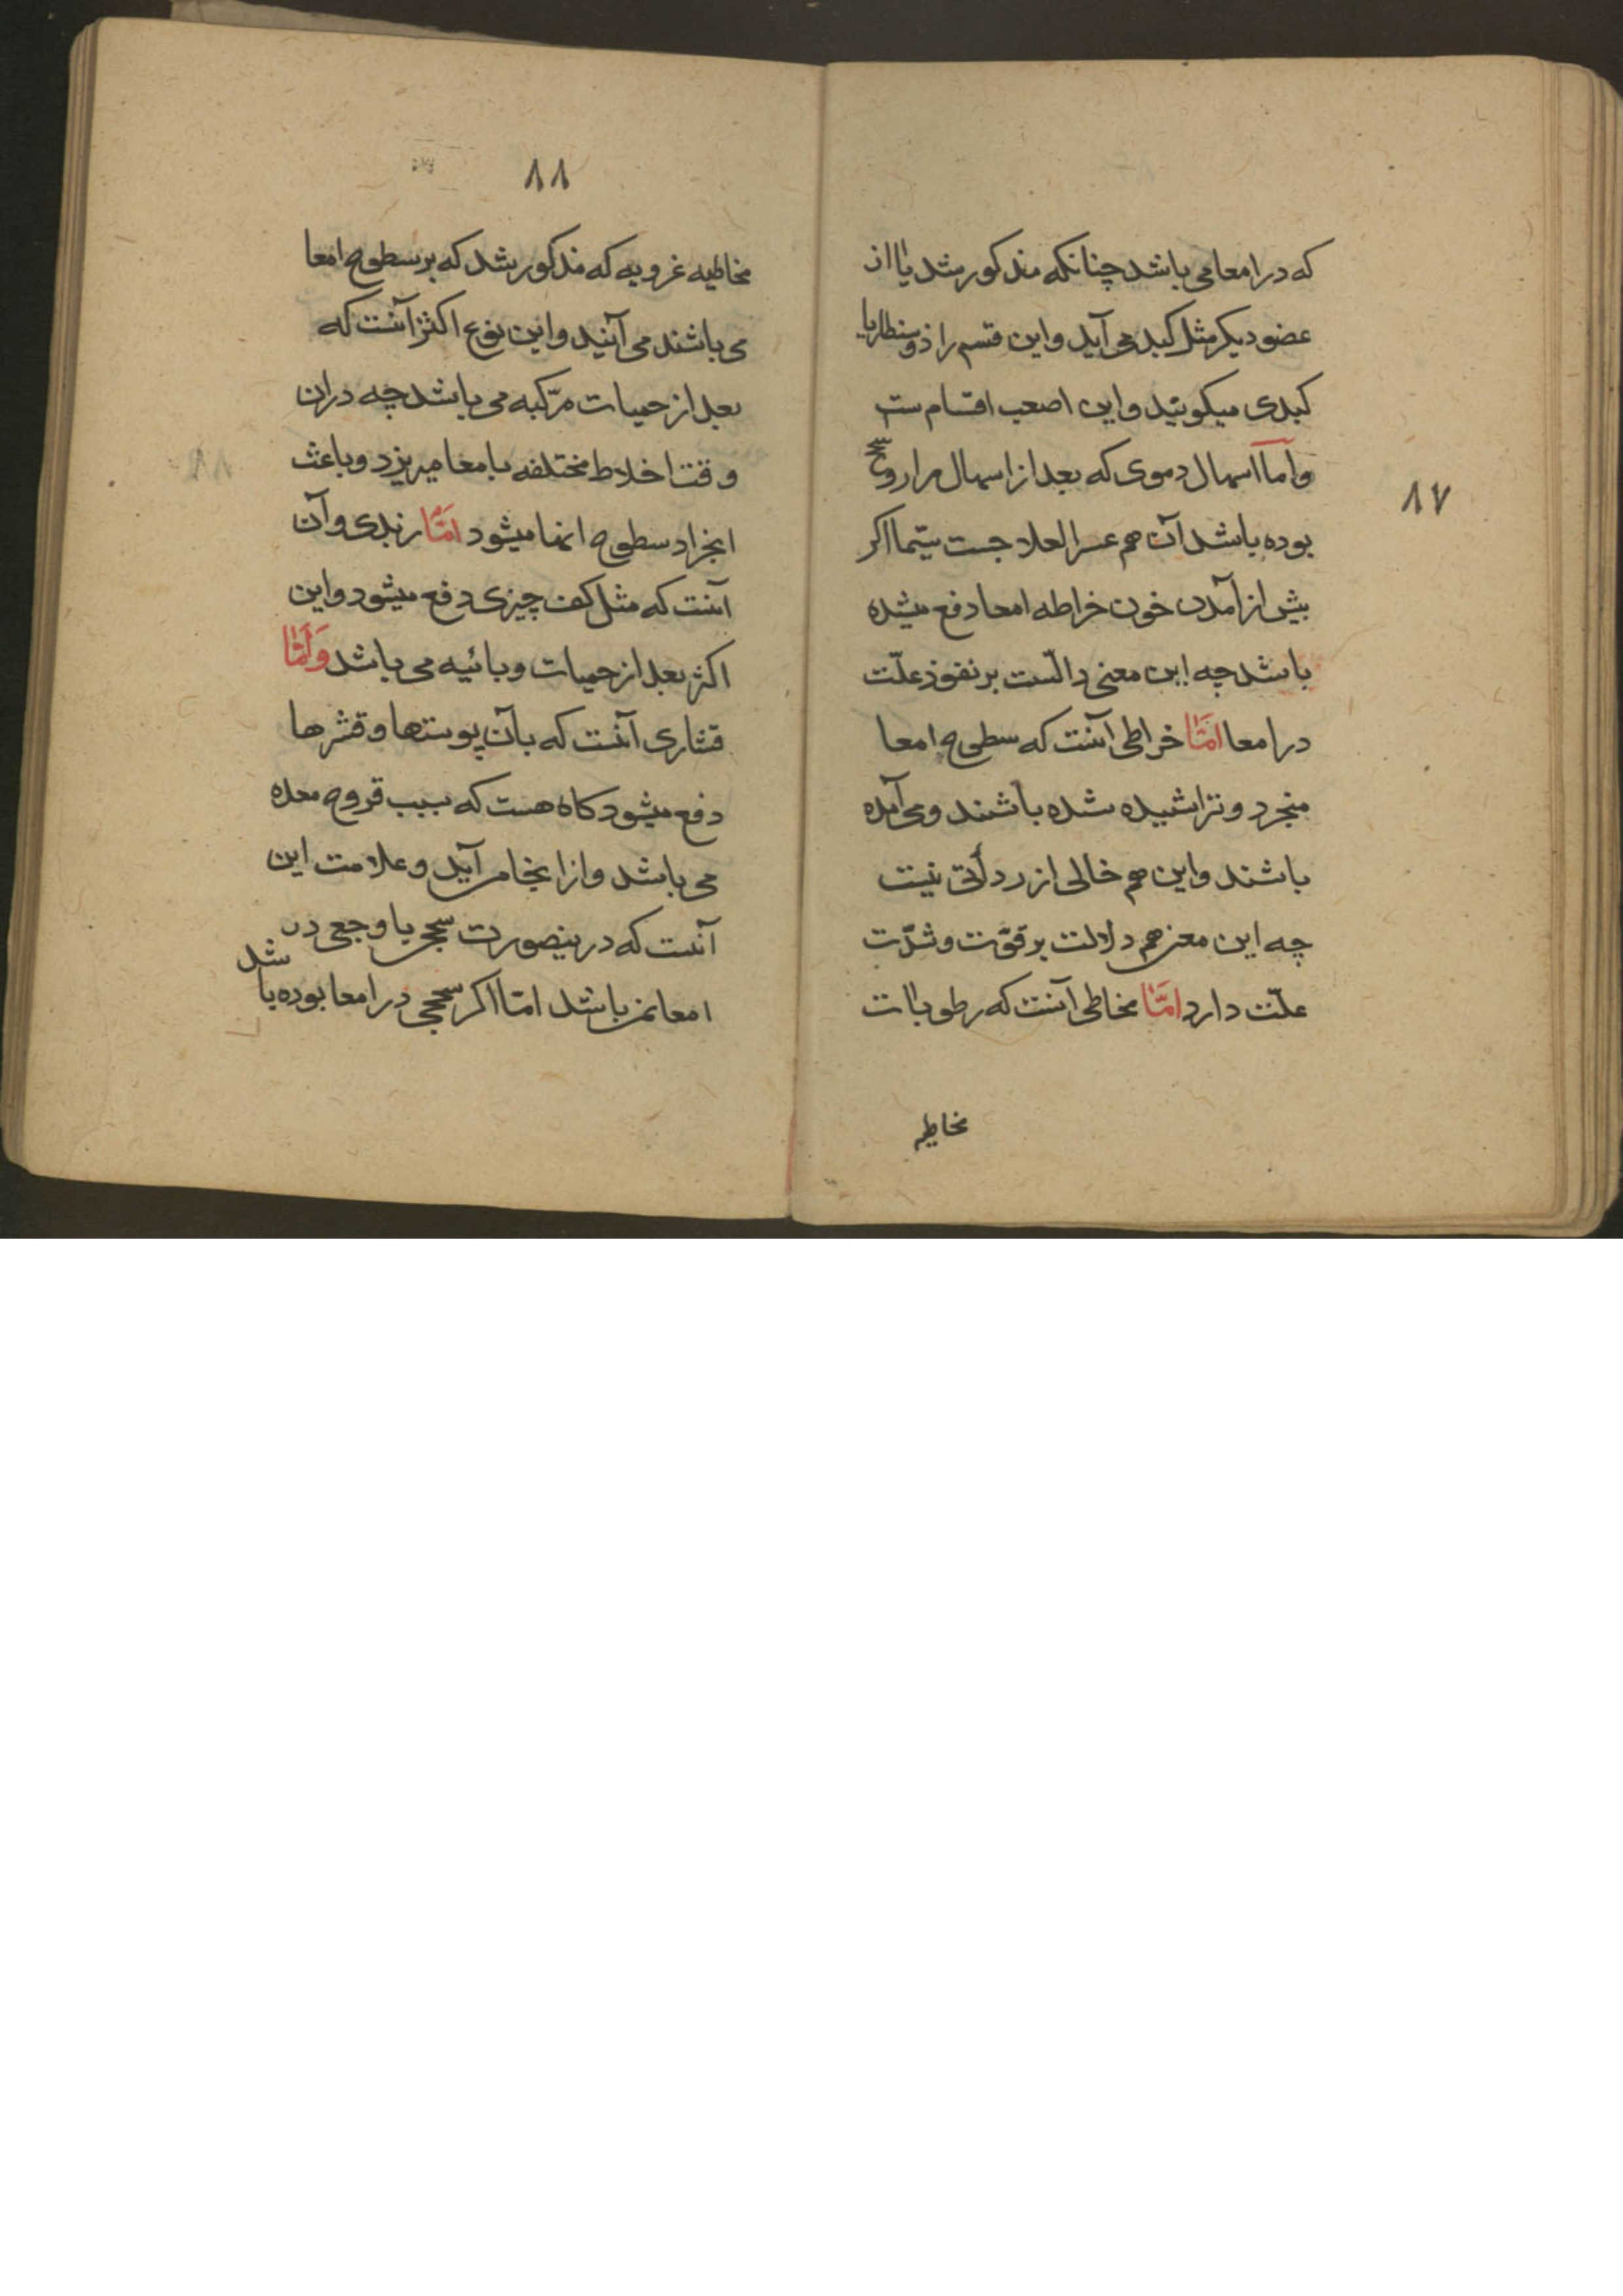 ۸۷
که در امعا می باشد چنانکه مذکور شد یا از
عضو دیکر مثل کبد می آید و این قسم را ذوسنطاریا
کبدی میکویند و این اصعب اقسام ست
و اما اسهال دموی که بعد از اسهال مراروی
بوده باشد آن هم عسر العلاجست سیّما اکر
پیش از آمدن خون خراطه امعا دفع میشده
باشد چه این معنی دالّست بر نفوذ علّت
در امعا امّا خراطی آنست که سطوح امعا
منجرد و تراشیده شده باشند و می آمده
باشند و این هم خالی از ردأتی نیست
چه این معنی هم دلالت بر قوّت و شدّت
علّت دارد امّا مخاطی آنست که رطوبات
مخاطیه
۸۸
مخاطیه غرویه که مذکور شد که بر سطوح امعا
می باشند می آیند و این نوع اکثر آنست که
بعد از حمیات مرّکبه می باشد چه در ان
وقت اخلاط مختلفه بامعا میریزد و باعث
انجراد سطوح انها میشود امّا زبدی و آن
آنست که مثل کف چیزی دفع میشود و این
اکثر بعد از حمیات وبائیه می باشد وَ اَمّا
قشاری آنست که بآن پوستها و قشرها
دفع میشود کاه هست که بسبب قروح معده
می باشد و از انجا می آید و علامت این
آنست که درینصورت سحجی یا وجعی در
امعا نمی باشد امّا اکر سحجی در امعا بوده باشد